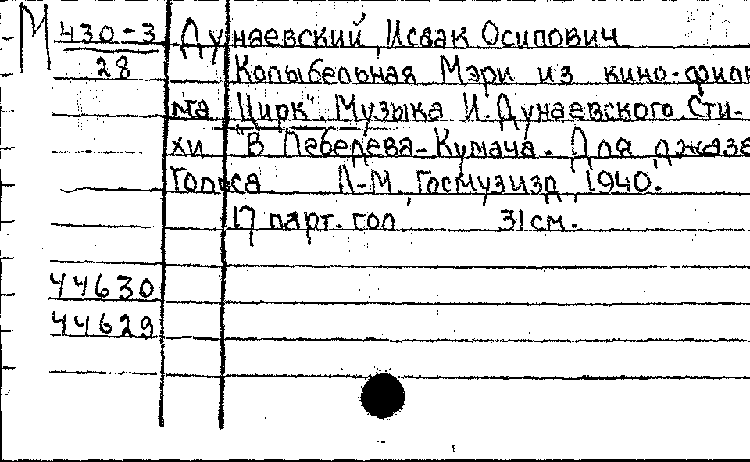 М 430-3 Дунаевский, Исаак Осипович
28 Колыбельная Мэри из кино-филь
ма "Цирк". Музыка И. Дунаевского. Сти-
хи В. Лебедева-Кумача. Для джаза
голоса Л-М., Госмузизд, 1940.
17 парт. гол 31 см.
44630
44629